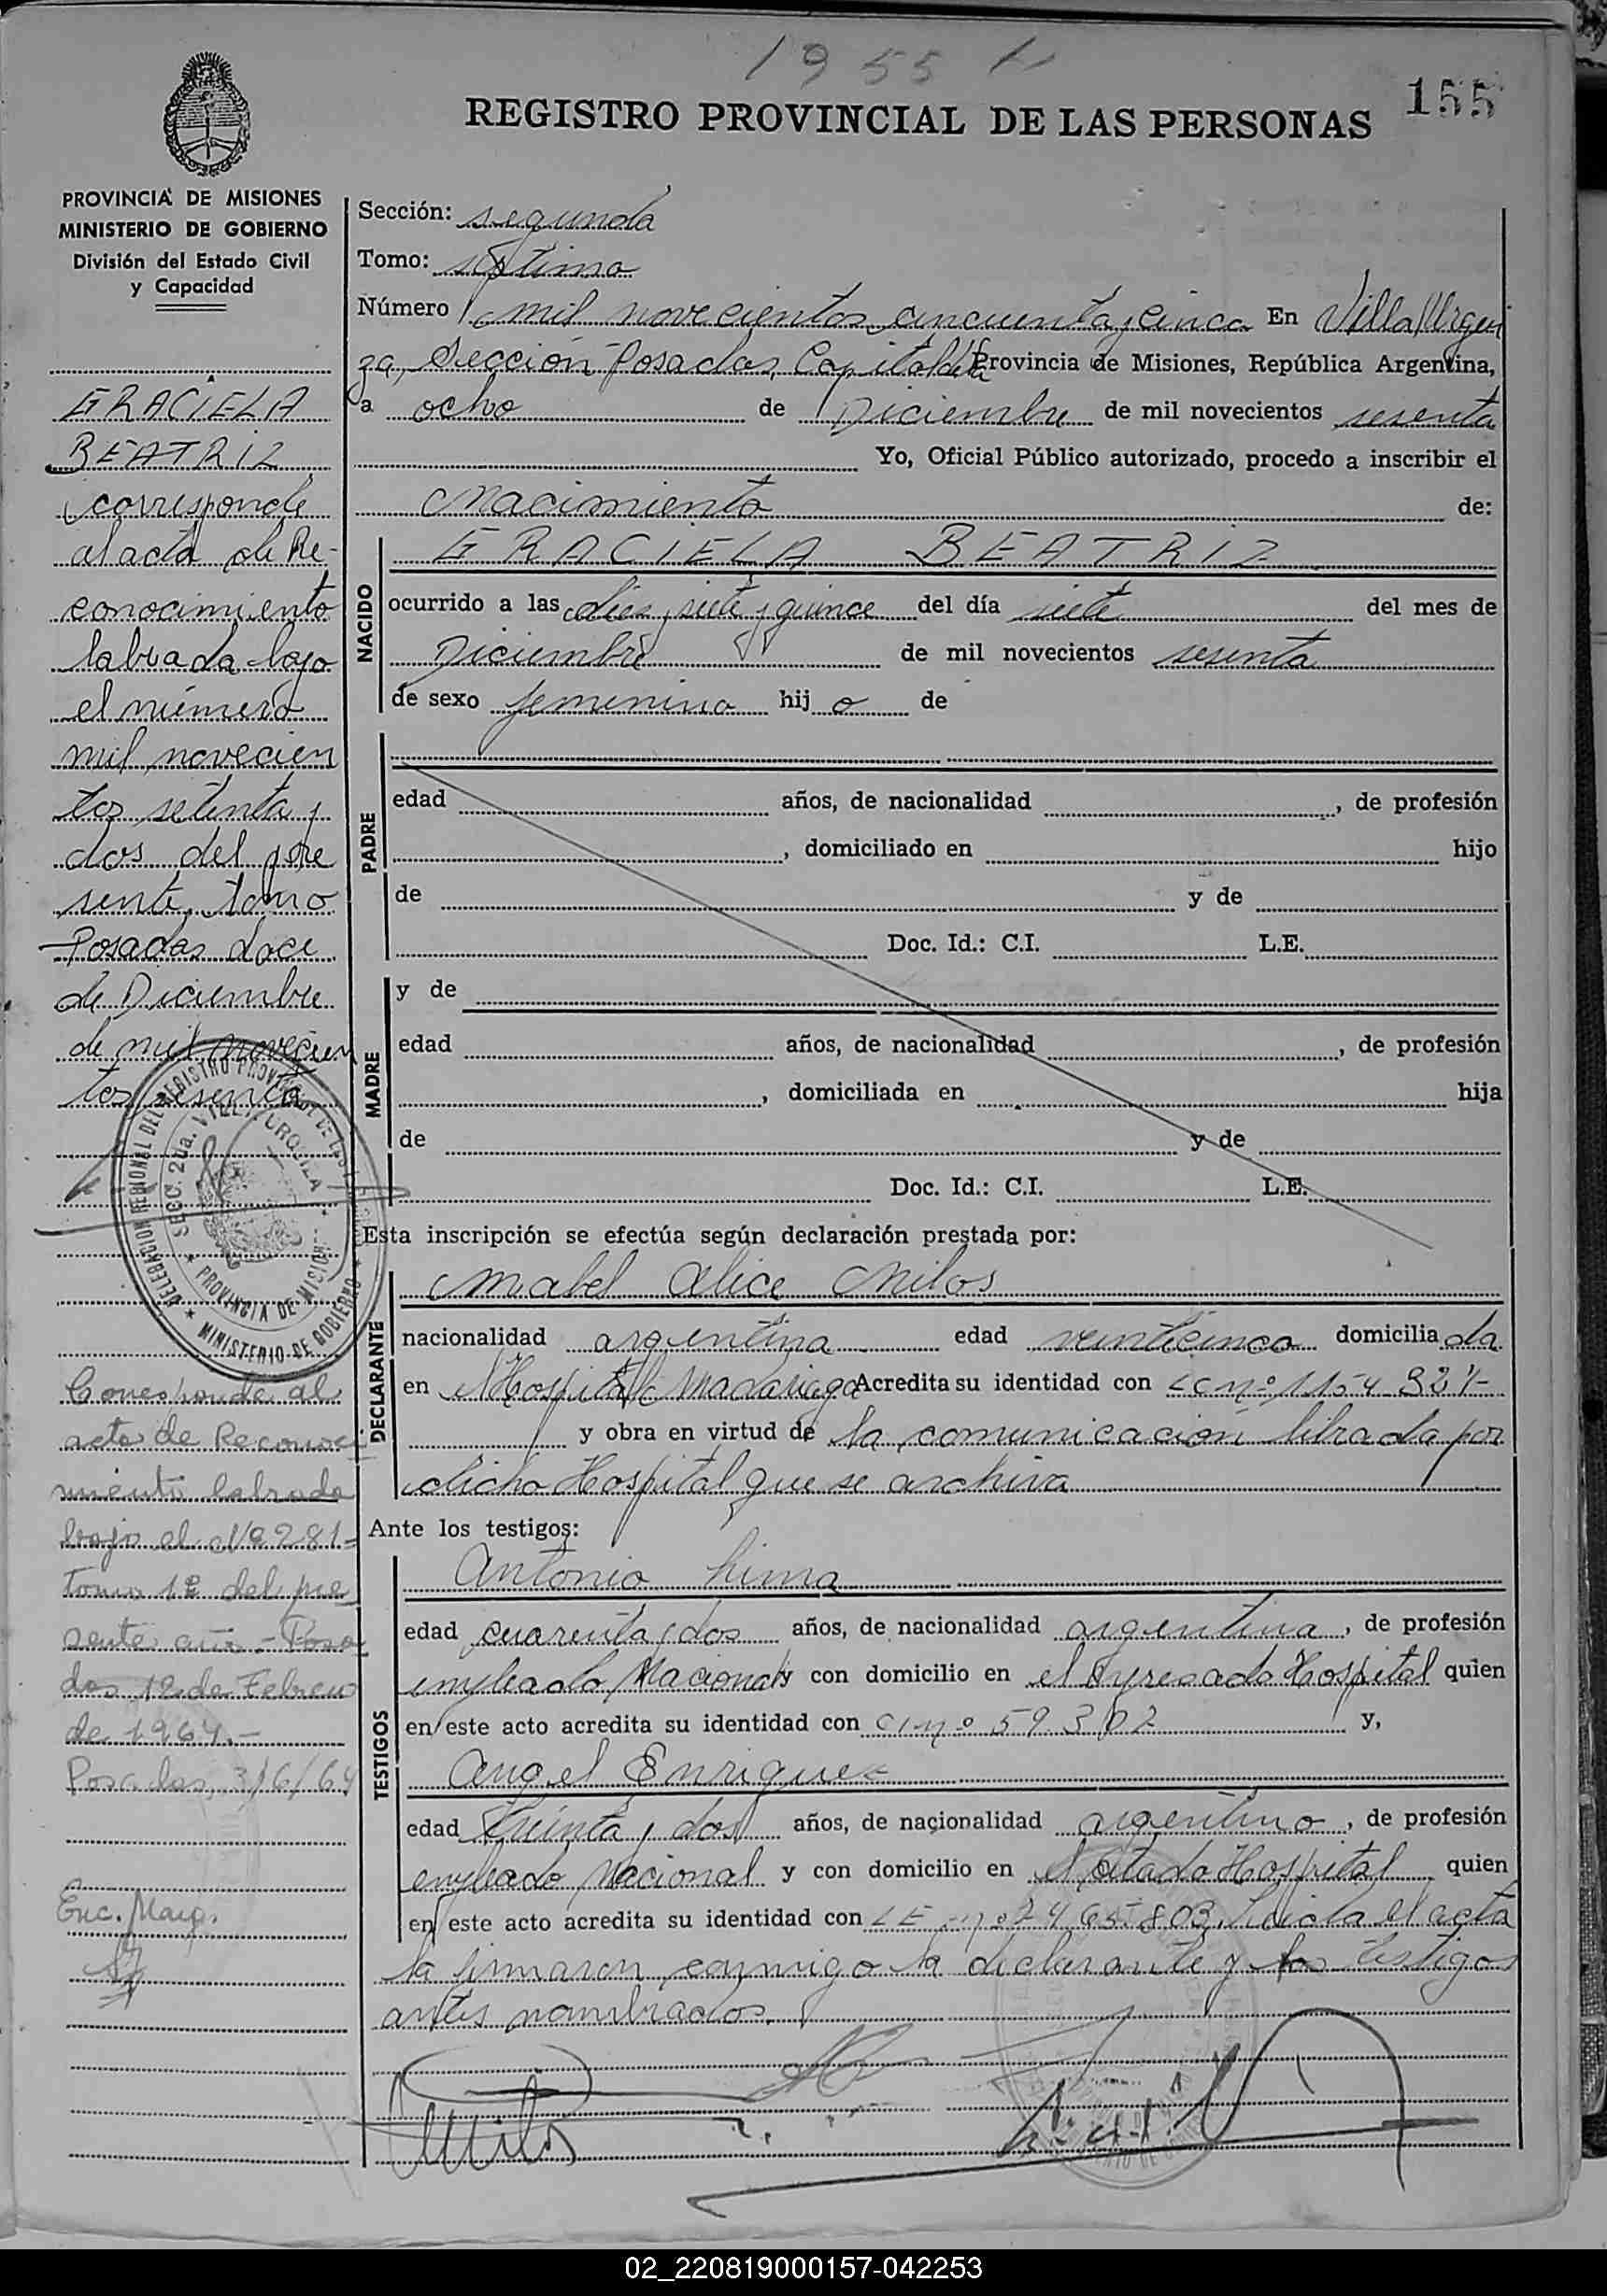 1955
155
REGISTRO PROVINCIAL DE LAS PERSONAS
PROVINCIA DE MISIONES
MINISTERIO DE GOBIERNO
División del Estado Civil
y Capacidad
GRACIELA
BEATRIZ
corresponde
al acta de Re-
conocimiento
labrada bajo
el número
mil novecien
tos setenta y
dos del pre
sente tomo
Posadas doce
de Diciembre
de mil novecien
tos sesenta
DELEGACION REGIONAL DEL REGISTRO PROVINCIAL DE LAS
SECC. 2da. VILLA URQUIZA
PROVINCIA DE MISIONES
MINISTERIO DE GOBIERNO
Corresponde al
acta de Reconoci
miento labrada
bajo el Nº 281-
Tomo 1º del pre
sente año.- Posa
das 12 de Febrero
de 1964.-
Posadas, 3/6/64
Enc. Marg.
Sección: segunda
Tomo: séptimo
Número mil novecientos cincuenta y cinco En Villa Urqui
za, Sección Posadas, Capital de la Provincia de Misiones, República Argentina,
a ocho de Diciembre de mil novecientos sesenta
Yo, Oficial Público autorizado, procedo a inscribir el
Nacimiento de:
NACIDO
GRACIELA BEATRIZ
ocurrido a las diez y siete y quince del día siete del mes de
Diciembre de mil novecientos sesenta
de sexo femenino hij a de
PADRE
edad años, de nacionalidad , de profesión
, domiciliado en hijo
de y de
Doc. Id.: C.I. L.E.
MADRE
y de
edad años, de nacionalidad , de profesión
, domiciliada en hija
de y de
Doc. Id.: C.I. L.E.
Esta inscripción se efectúa según declaración prestada por:
DECLARANTE
Mabel Alice Milos
nacionalidad argentina edad veinticinco domicilia da
en Hospital Madariaga Acredita su identidad con LC nº
y obra en virtud de la comunicación librada por
dicho Hospital que se archiva
Ante los testigos:
TESTIGOS
Antonio Lima
edad cuarenta y dos años, de nacionalidad argentina, de profesión
empleado Nacional y con domicilio en el Hospital quien
en este acto acredita su identidad con CI nº 59.302 y,
Angel Enriquez
edad treinta y dos años, de nacionalidad argentino, de profesión
empleado Nacional y con domicilio en el citado Hospital quien
en este acto acredita su identidad con LE nº Leída el acta
la firmaron conmigo la declarante y los testigos
antes nombrados.
Milos
02_220819000157-042253